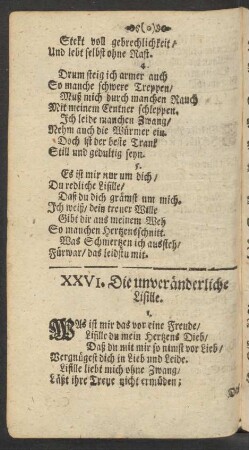 Stekt voll gebrechlichkeit/
Und lebt selbst ohne Rast.
4.
Drum steig ich armer auch
So manche schwere Treppen/
Muß mich durch manchen Rauch
Mit meinem Centner schleppen.
Ich leide manchen Zwang/
Nehm auch die Würmer ein.
Doch ist der beste Trank
Still und gedultig seyn.
5.
Es ist mir nur um dich/
Du redliche Lisille/
Daß du dich grämst um mich.
Ich weiß/ dein treuer Wille
Gibt dir aus meinem Weh
So manchen Hertzensschnitt.
Was Schmertzen ich aussteh/
Fürwar/ das leidstu mit.
XXVI. Die unveränderliche
Lisille.
1.
WAs ist mir das vor eine Freude/
Lisille du mein Hertzens Dieb/
Daß du mit mir so nimst vor Lieb/
Vergnügest dich in Lieb und Leide.
Lisille liebt mich ohne Zwang/
Läßt ihre Treue nicht ermüden;